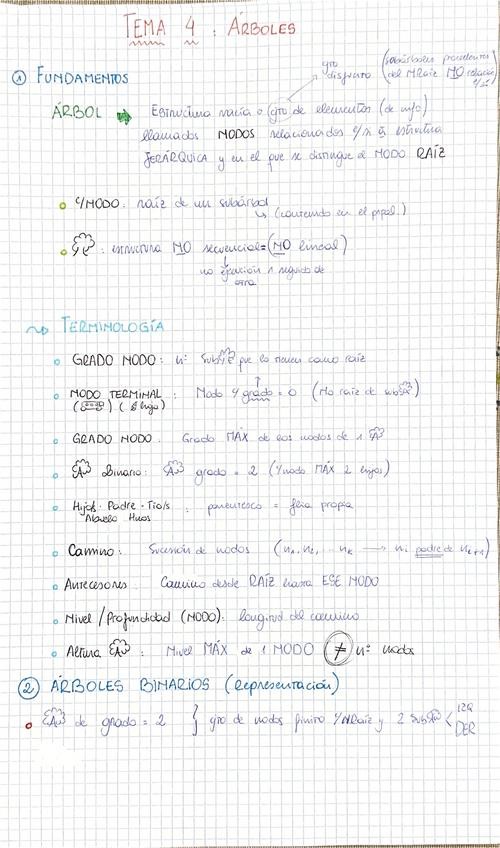 TEMA 4 : ÁRBOLES
① FUNDAMENTOS
gro disjunto (subárboles procedentes del N Raíz NO relación e/sí)
ÁRBOL ➡ Estructura vacía o gro de elementos (de info)
llamados NODOS relacionados e/sí estructura
JERÁRQUICA y en el que se distingue 1 NODO RAÍZ
c/NODO: raíz de un subárbol
↳ (contenido en el ppal.)
: estructura NO secuencial = (NO lineal)
no ejecución 1 seguida de otra
↝ TERMINOLOGÍA
GRADO NODO: nº Sub que lo tienen como raíz
NODO TERMINAL : Nodo c/ grado = 0 (No raíz de sub)
( ) ( hijo)
GRADO NODO: Grado MÁX de los nodos de 1
Binario: grado = 2 (c/nodo MÁX 2 hijos)
Hijos · Padre · Tío/s : parentesco = flia propia
Abuelo Hnos
Camino: Sucesión de nodos (n₁, n₂, ... nₖ → nᵢ padre de nᵢ₊₁)
Antecesores: Camino desde RAÍZ hasta ESE NODO
Nivel / Profundidad (NODO): longitud del camino
Altura : Nivel MÁX de 1 NODO ≠ nº nodos
② ÁRBOLES BINARIOS (Representación)
de grado = 2 } gro de nodos finito c/ N Raíz y 2 Sub < IZQ DER